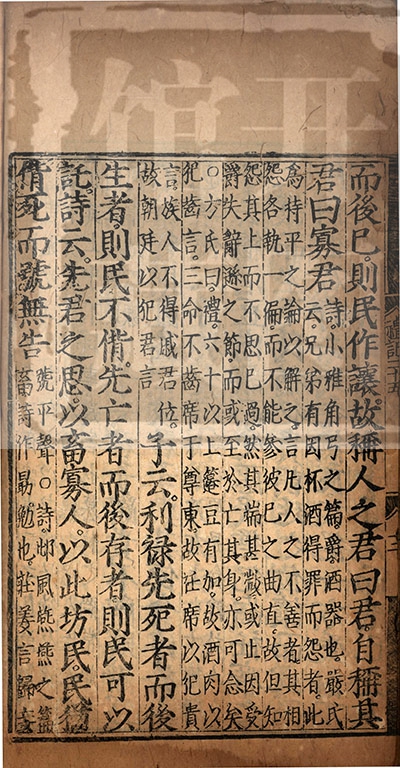 而後已則民作讓故稱人之君曰君自稱其
君曰寡君
詩小雅角弓之篇爵酒器也嚴氏
云兄弟有因杯酒得罪而怨者此
為持平之論以解之言凡人之不善者其相
怨各執一偏而不能參彼已之曲直故但知
怨其上而不思已過然其端甚微或止因受
爵失辭遜之節而或至於亡其身亦可念矣
○方氏曰禮六十以上籩豆有加故酒肉以
犯齒言三命不齒席于尊東故衽席以犯貴
言族人不得戚君位
故朝廷以犯君言
子云利禄先死者而後
生者則民不偝先亡者而後存者則民可以
託詩云先君之思以畜寡人以此坊民民猶
偝死而號無告
號平聲○詩邶風燕燕之篇
畜詩作勗勉也莊姜言歸妾